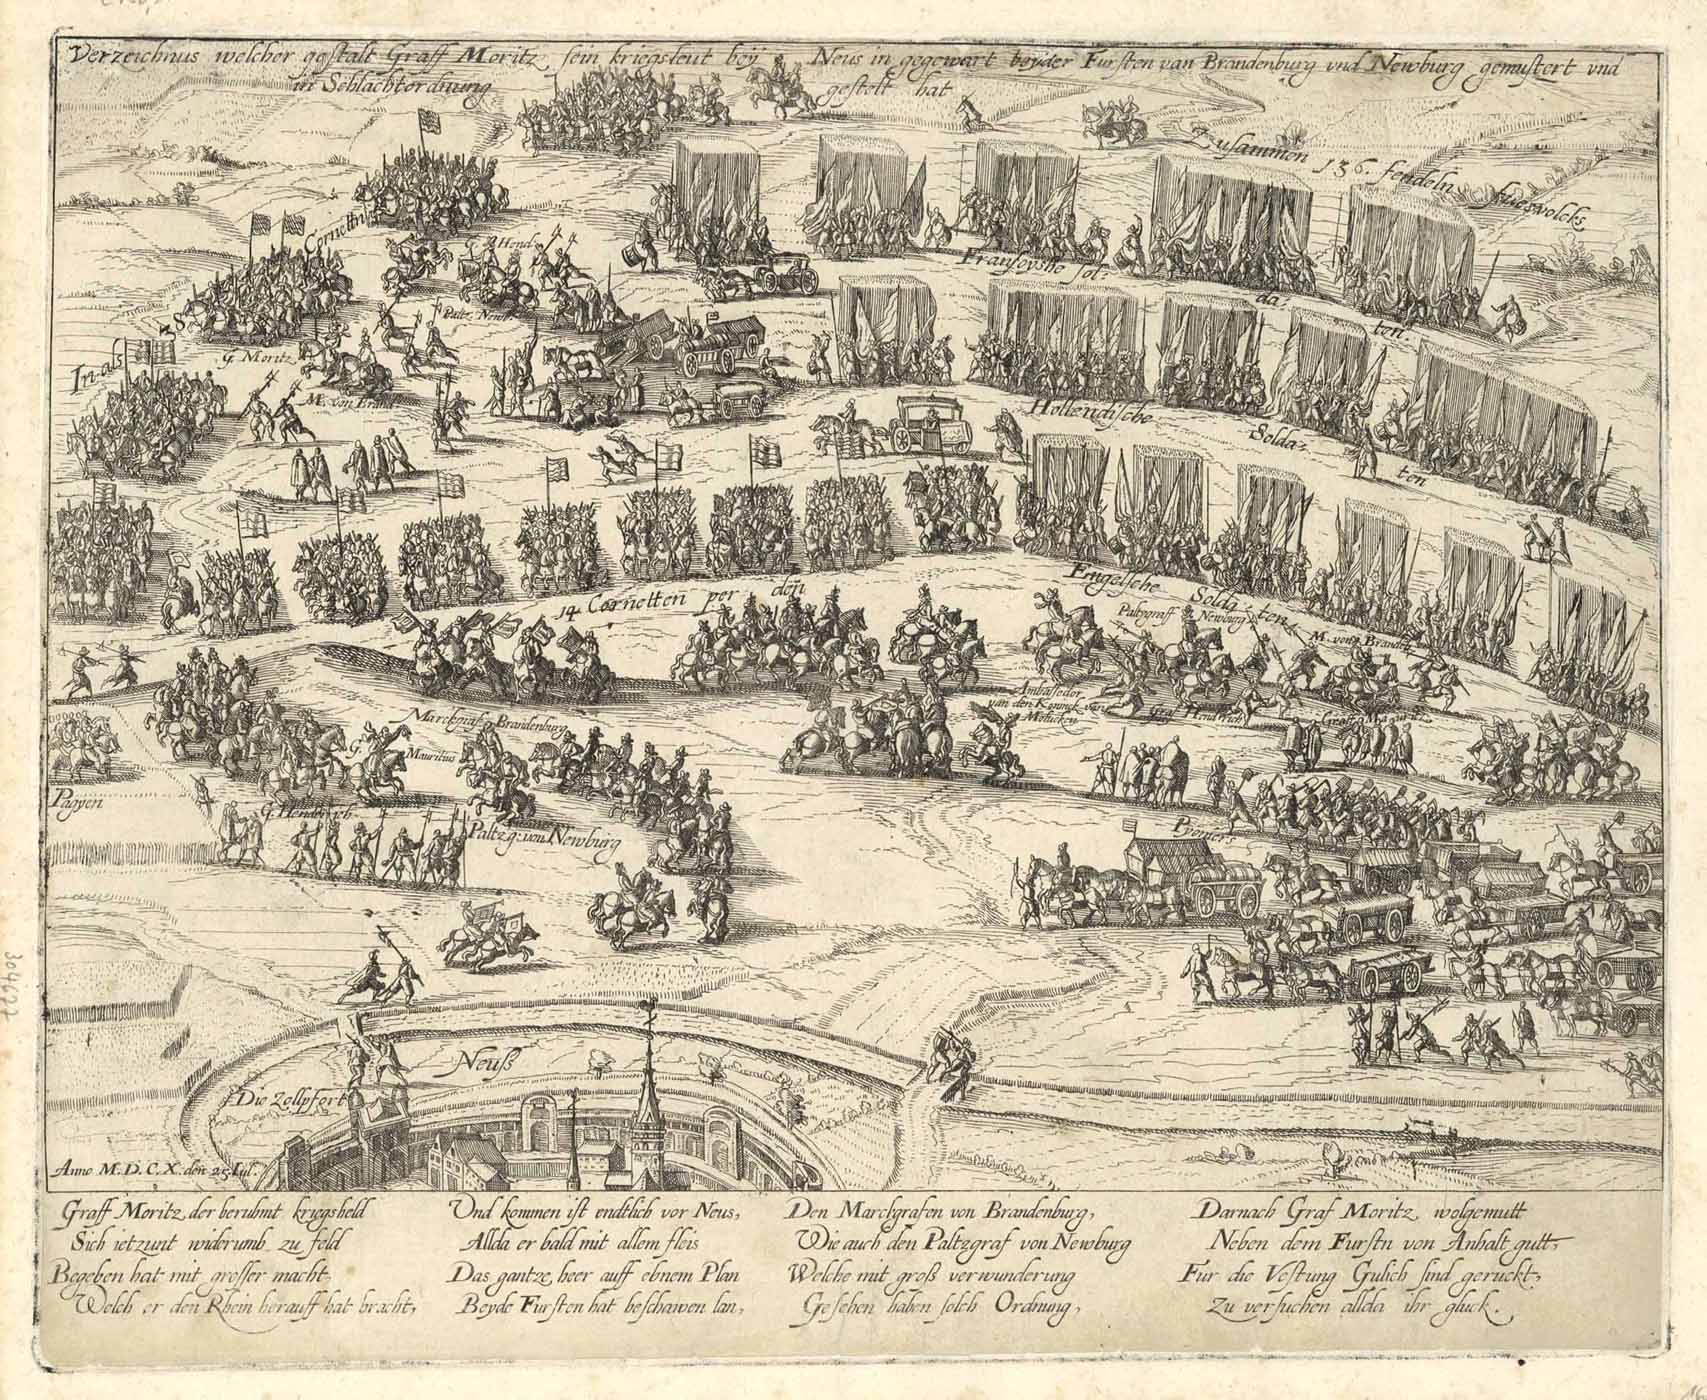 Verzeichnus welcher gestalt Graff Moritz sein kriegsleut bey Neus in gegewart beyder Fursten van Brandenburg vnd Newburg gemustert vnd
in Schlachtordnung gestelt hat
Zusammen 136. fendeln fuesvolcks
Cornetten
G. Hend.
Fransoyshe soldaten.
Paltz. Newb.
G. Moritz
In als 48
M. von Brand.
Hollendische Soldaten
Engelsche Soldaten
14 Cornetten per den
Paltzgraff Newburg
M. von Brandeb.
Ambasedor
van den Konnick van
Graf Hendrich
Marckgraf. Brandenburg
G. Mauritius
Pagyen
G. Henderich
Paltzg: von Newburg
Neuss
Die Zollpfort
Anno M. D. C. X. den 25 Iul.
Graff Moritz der beruhmt kriegsheld
Sich ietzunt widerumb zu feld
Begeben hat mit grosser macht,
Welch er den Rhein herauff hat bracht,
Und kommen ist endtlich vor Neus,
Allda er bald mit allem fleis
Das gantze heer auff ebnem Plan
Beyde Fursten hat beschawen lan,
Den Marckgrafen von Brandenburg,
Wie auch den Paltzgraf von Newburg
Welche mit groß verwunderung
Gesehen haben solch Ordnung,
Darnach Graf Moritz wolgemutt
Neben dem Furstn von Anhalt gutt,
Fur die Vestung Gulich sind geruckt,
Zu versuchen allda ihr gluck.
304677